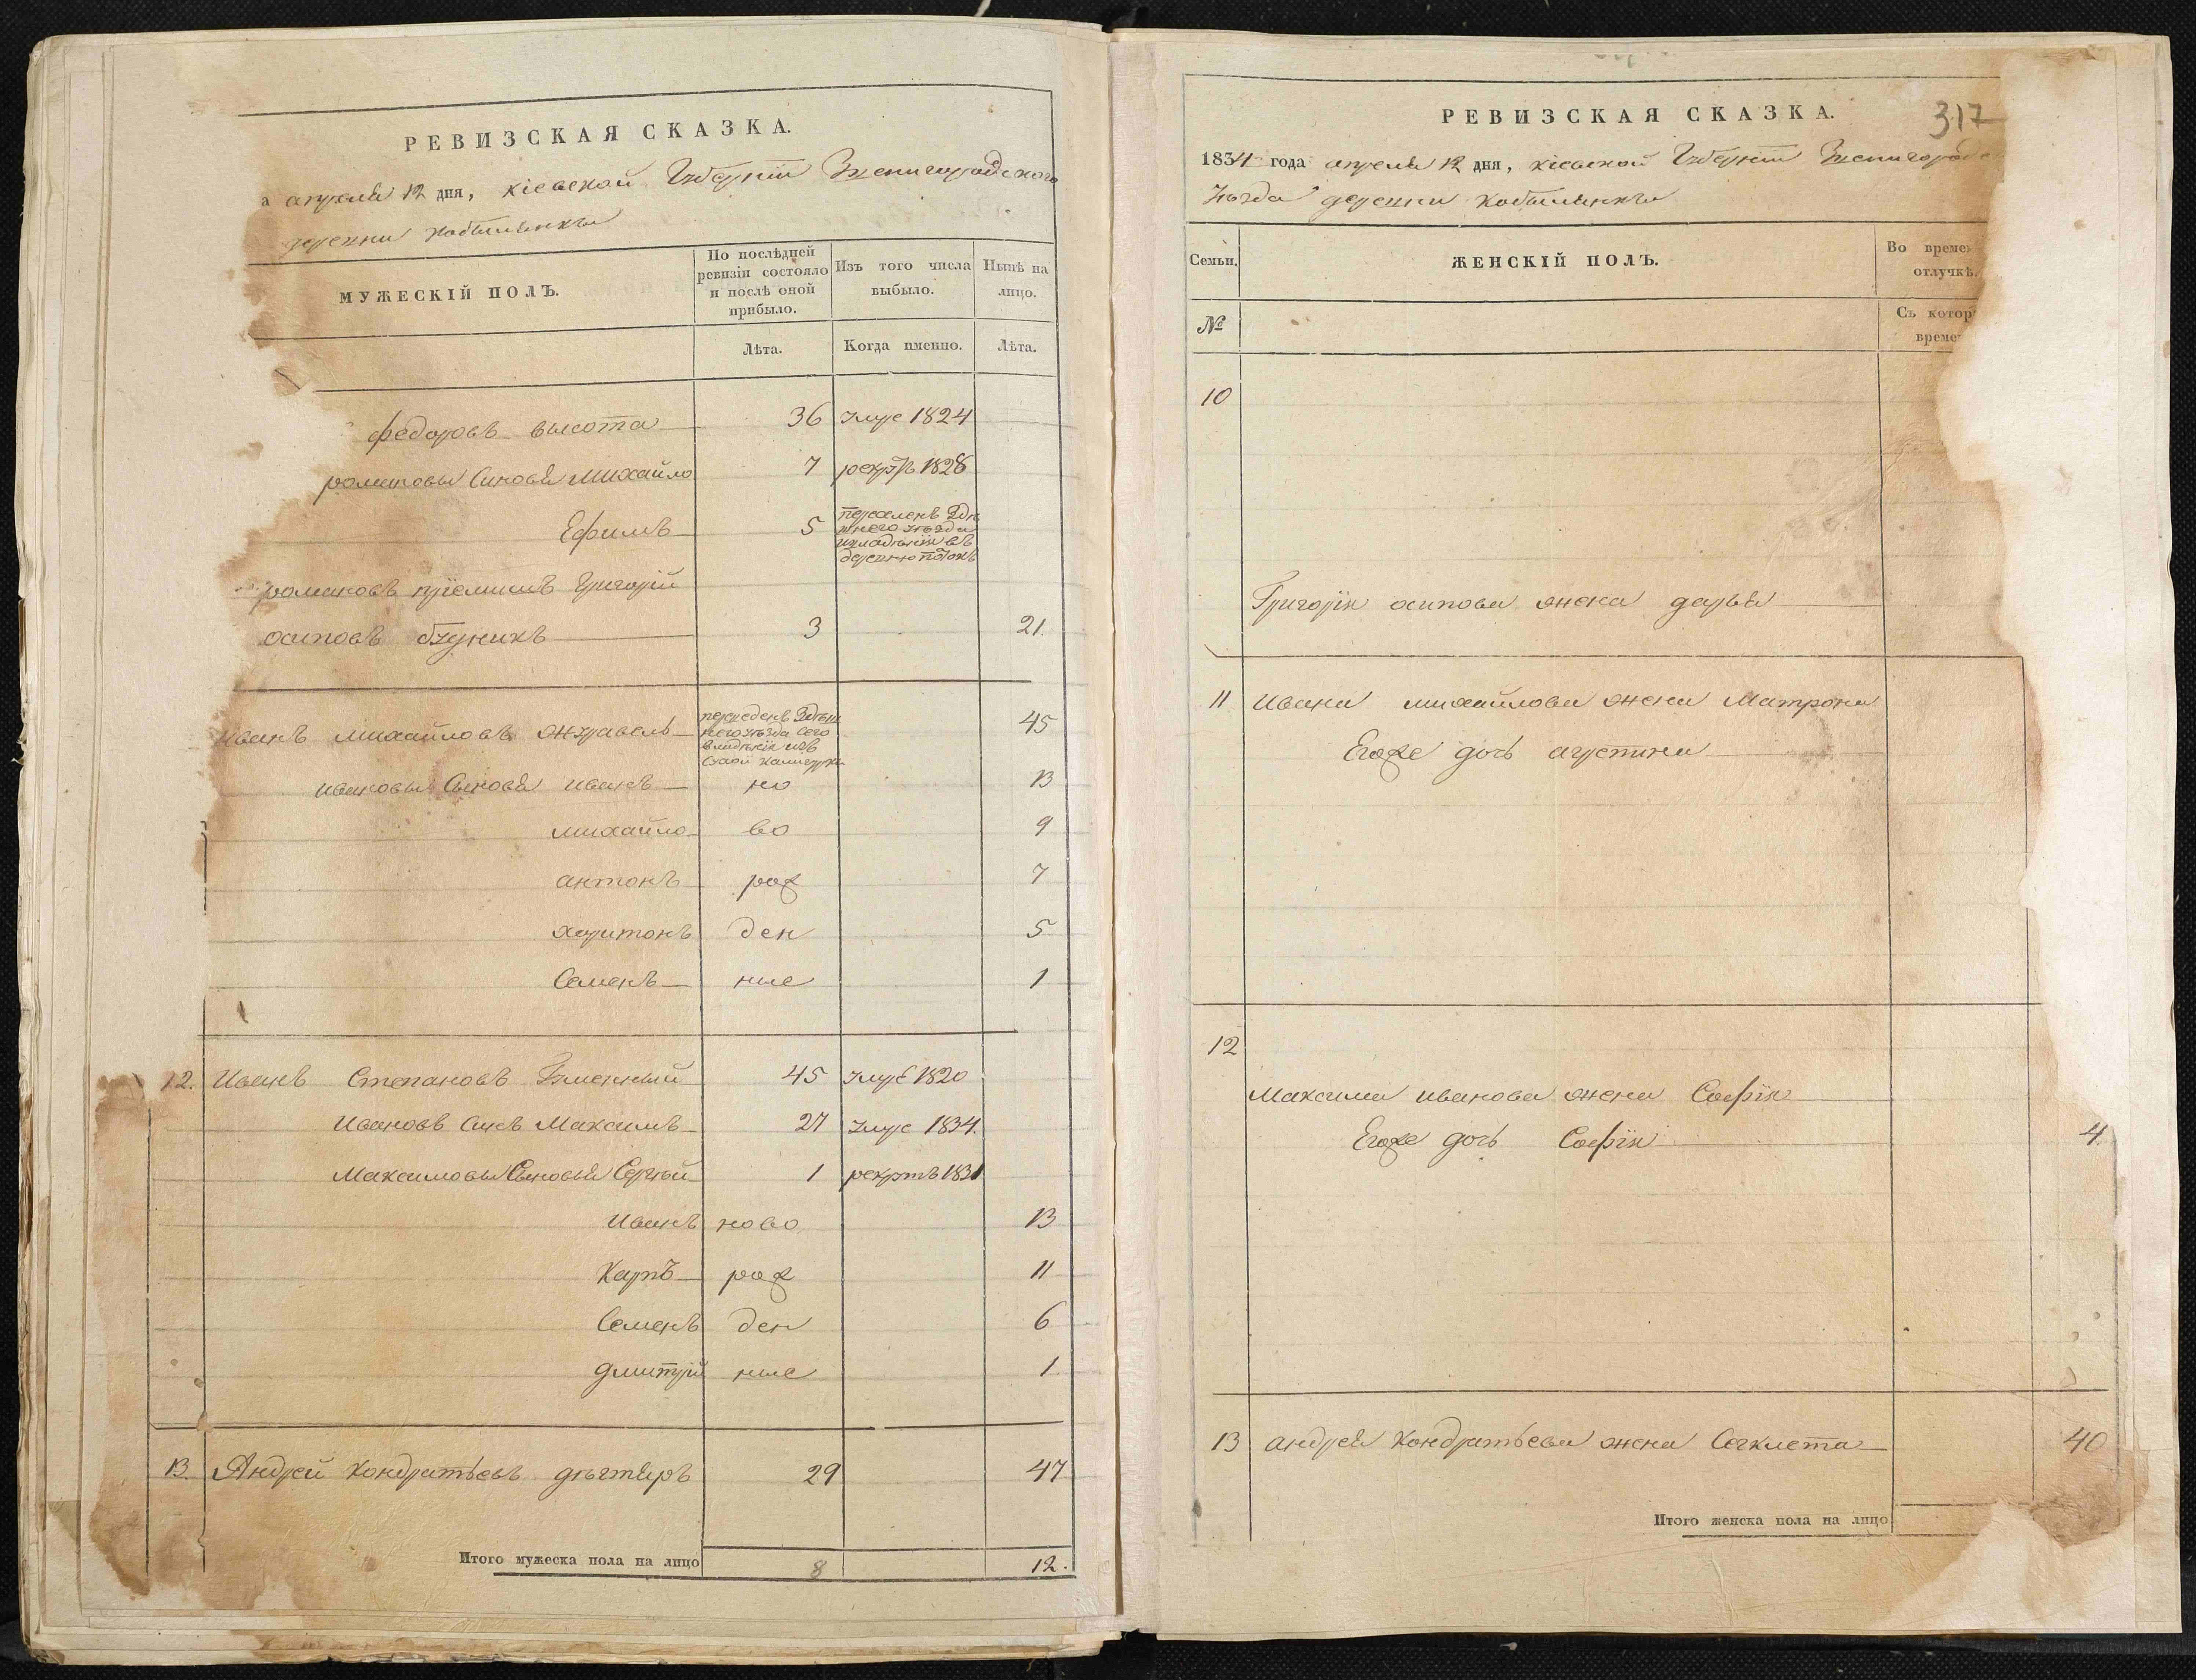 РЕВИЗСКАЯ СКАЗКА.
а апреля 12 дня, кіевской Губерніи Звенигородского
деревни Кобылянки
МУЖЕСКІЙ ПОЛЪ.
По послѣдней ревизіи состояло и послѣ оной прибыло.
Изъ того числа выбыло.
Нынѣ на лицо.
Лѣта.
Когда именно.
Лѣта.
федоровъ высота 36 умре 1824
романовы Синовя михайло 7 рекр. 1828
Ефимъ 5
деревню
романовъ пріемишъ Григорій
осиповъ 3 21.
иванъ михайловъ журавель 45
ивановы Сыновя иванъ но 13
михайло во 9
антонъ рож 7
харитонъ ден 5
Семенъ ние 1
12. Иванъ Степановъ 45 умре 1820
Ивановъ Сынъ Максимъ 27 умре 1834.
Максимовы Сыновья Сергѣй 1 рекрутъ 1831
Иванъ ново 13
Карпъ рож 11
Семенъ ден 6
дмитрій ние 1
13. Андрей Кондратьевъ дѣгтяръ 29 47
Итого мужеска пола на лицо 8 12.
РЕВИЗСКАЯ СКАЗКА.
317
1834 года апреля 12 дня, кіевской Губерніи Звенигородс
уѣзда деревни Кобылянки
Семьи.
ЖЕНСКІЙ ПОЛЪ.
Во време
отлучкѣ.
№
Съ котор
време
10
Григорія осипова жена дарья
11 Ивана михайлова жена Матрона
Егоже дочь
12
Максима иванова жена Софія
Егоже дочь Софія 4
13 андрея Кондратьева жена Секлета 40
Итого женска пола на лицо